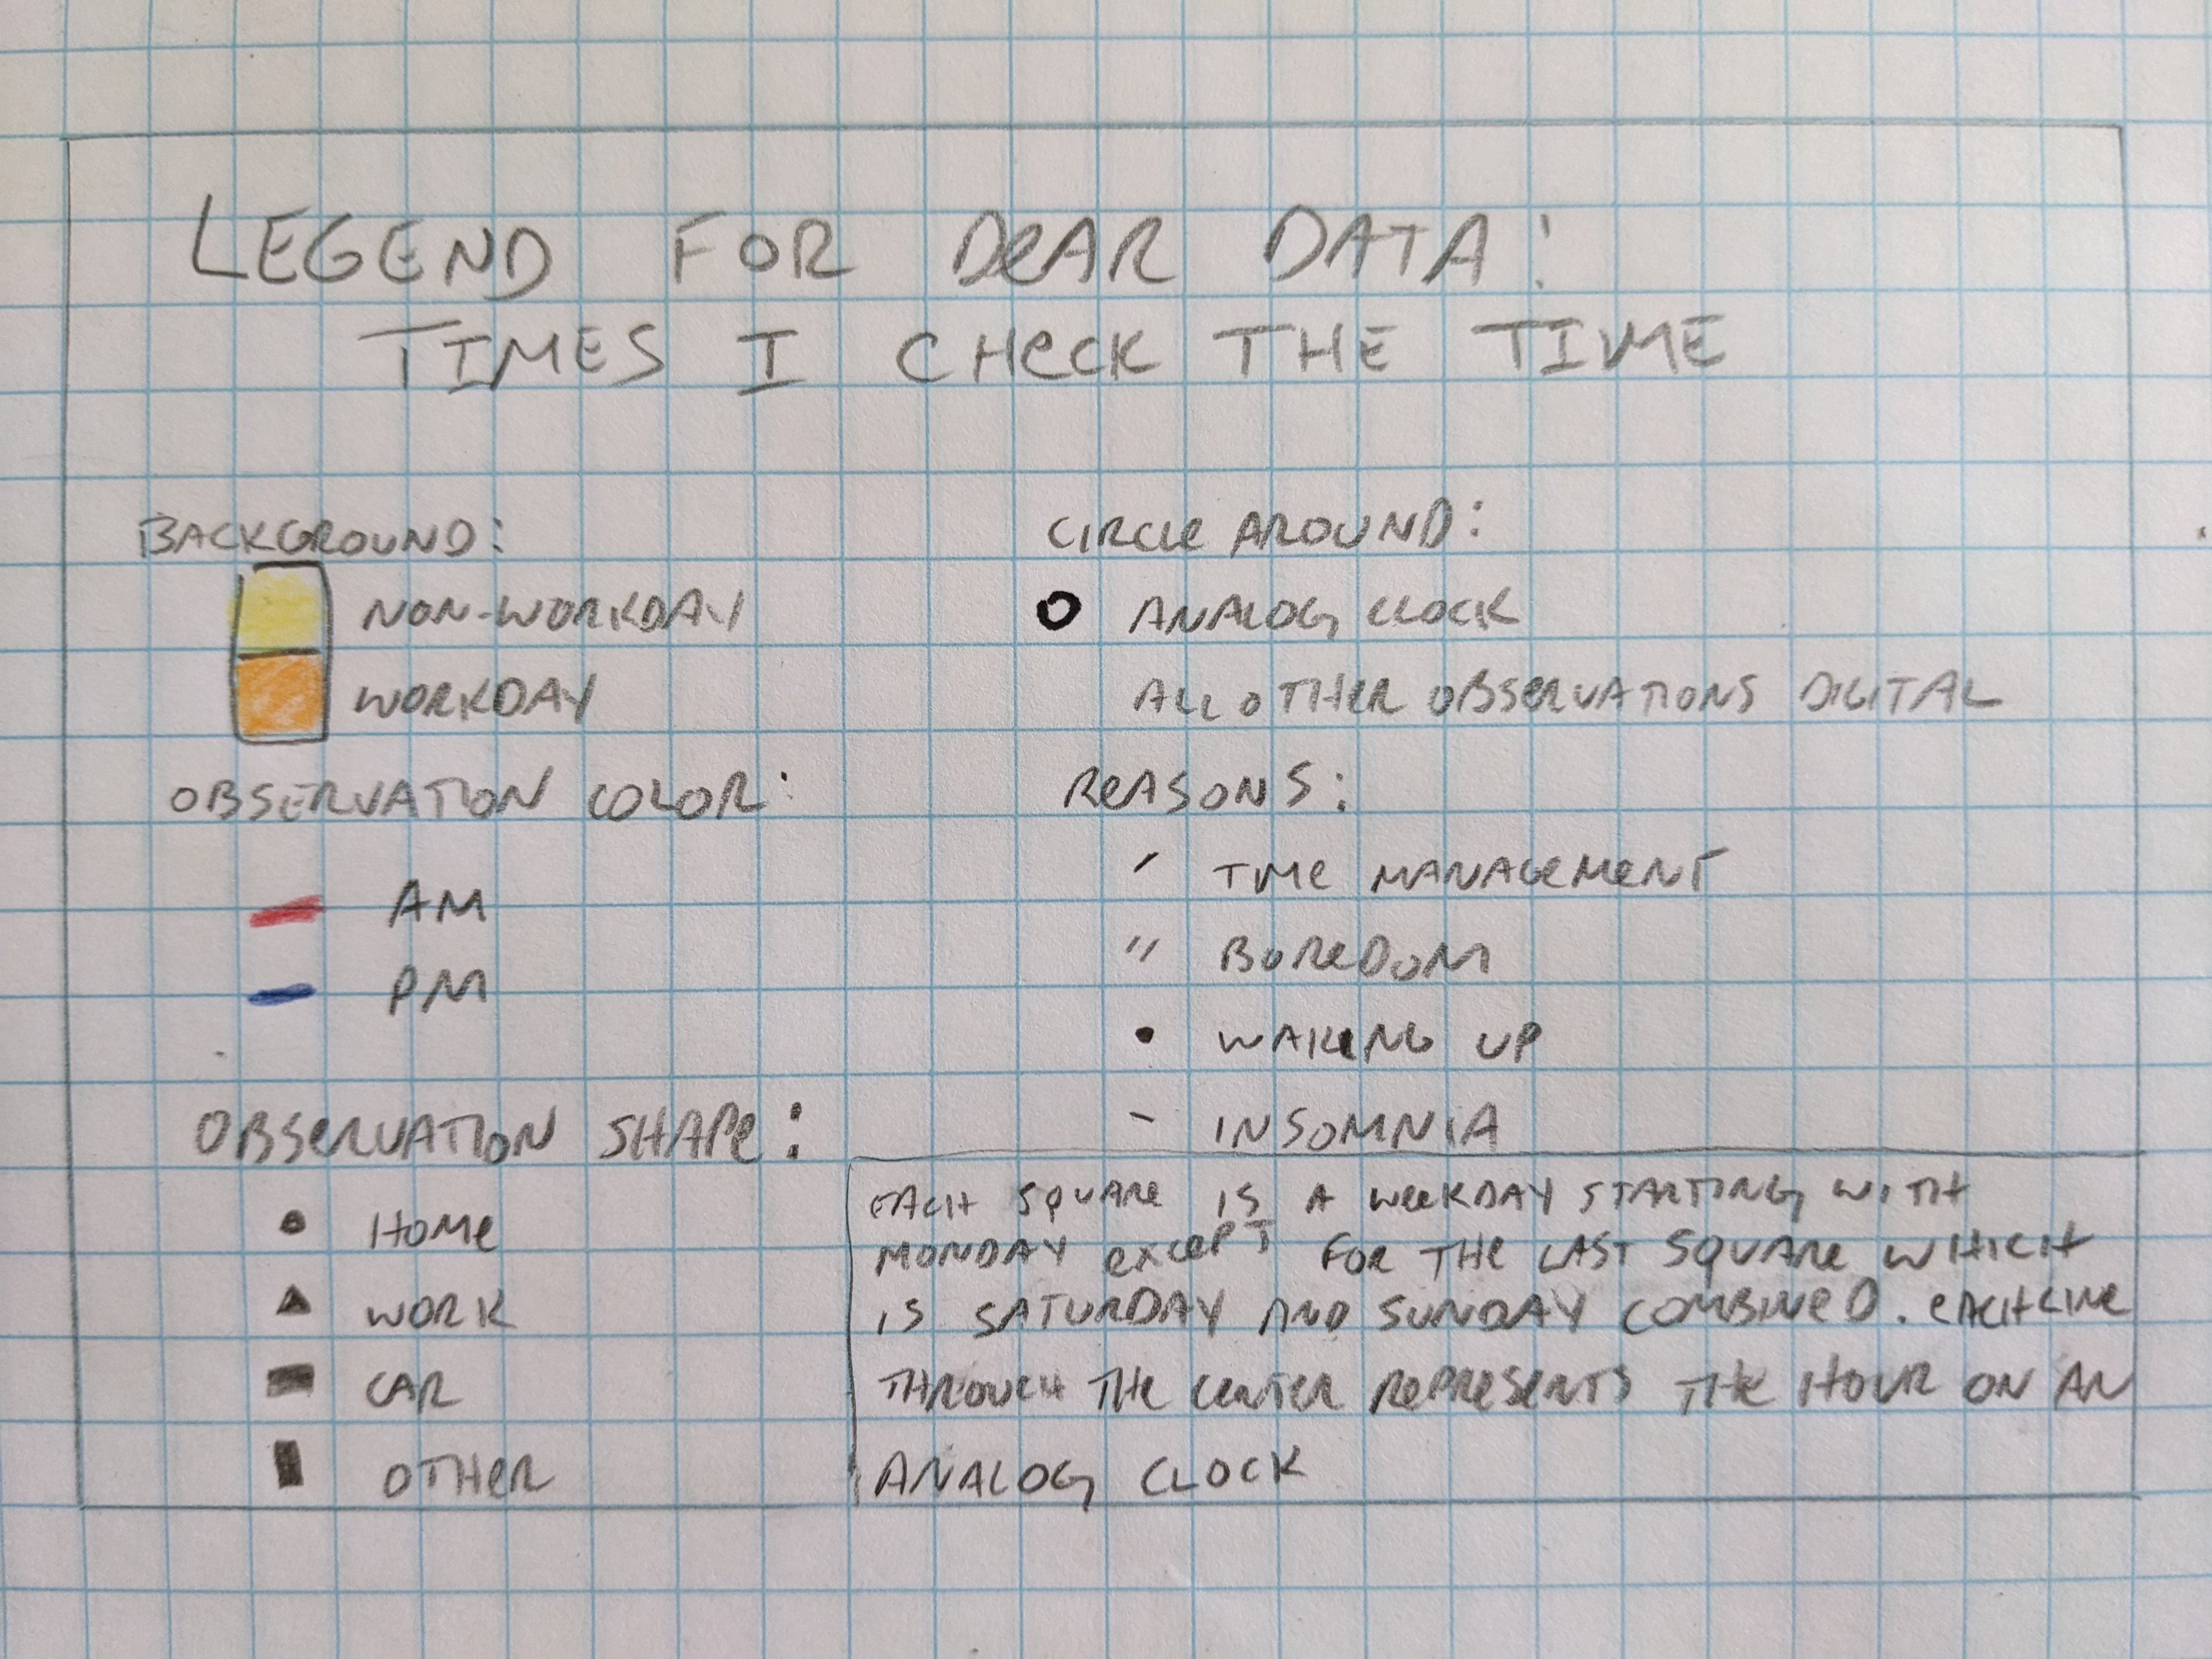 LEGEND FOR DEAR DATA:
TIMES I CHECK THE TIME
BACKGROUND:
NON-WORKDAY
WORKDAY
OBSERVATION COLOR:
AM
PM
OBSERVATION SHAPE:
HOME
WORK
CAR
OTHER
CIRCLE AROUND:
ANALOG CLOCK
ALL OTHER OBSERVATIONS DIGITAL
REASONS:
' TIME MANAGEMENT
" BOREDOM
• WAKING UP
- INSOMNIA
EACH SQUARE IS A WEEKDAY STARTING WITH
MONDAY EXCEPT FOR THE LAST SQUARE WHICH
IS SATURDAY AND SUNDAY COMBINED. EACH LINE
THROUGH THE CENTER REPRESENTS THE HOUR ON AN
ANALOG CLOCK